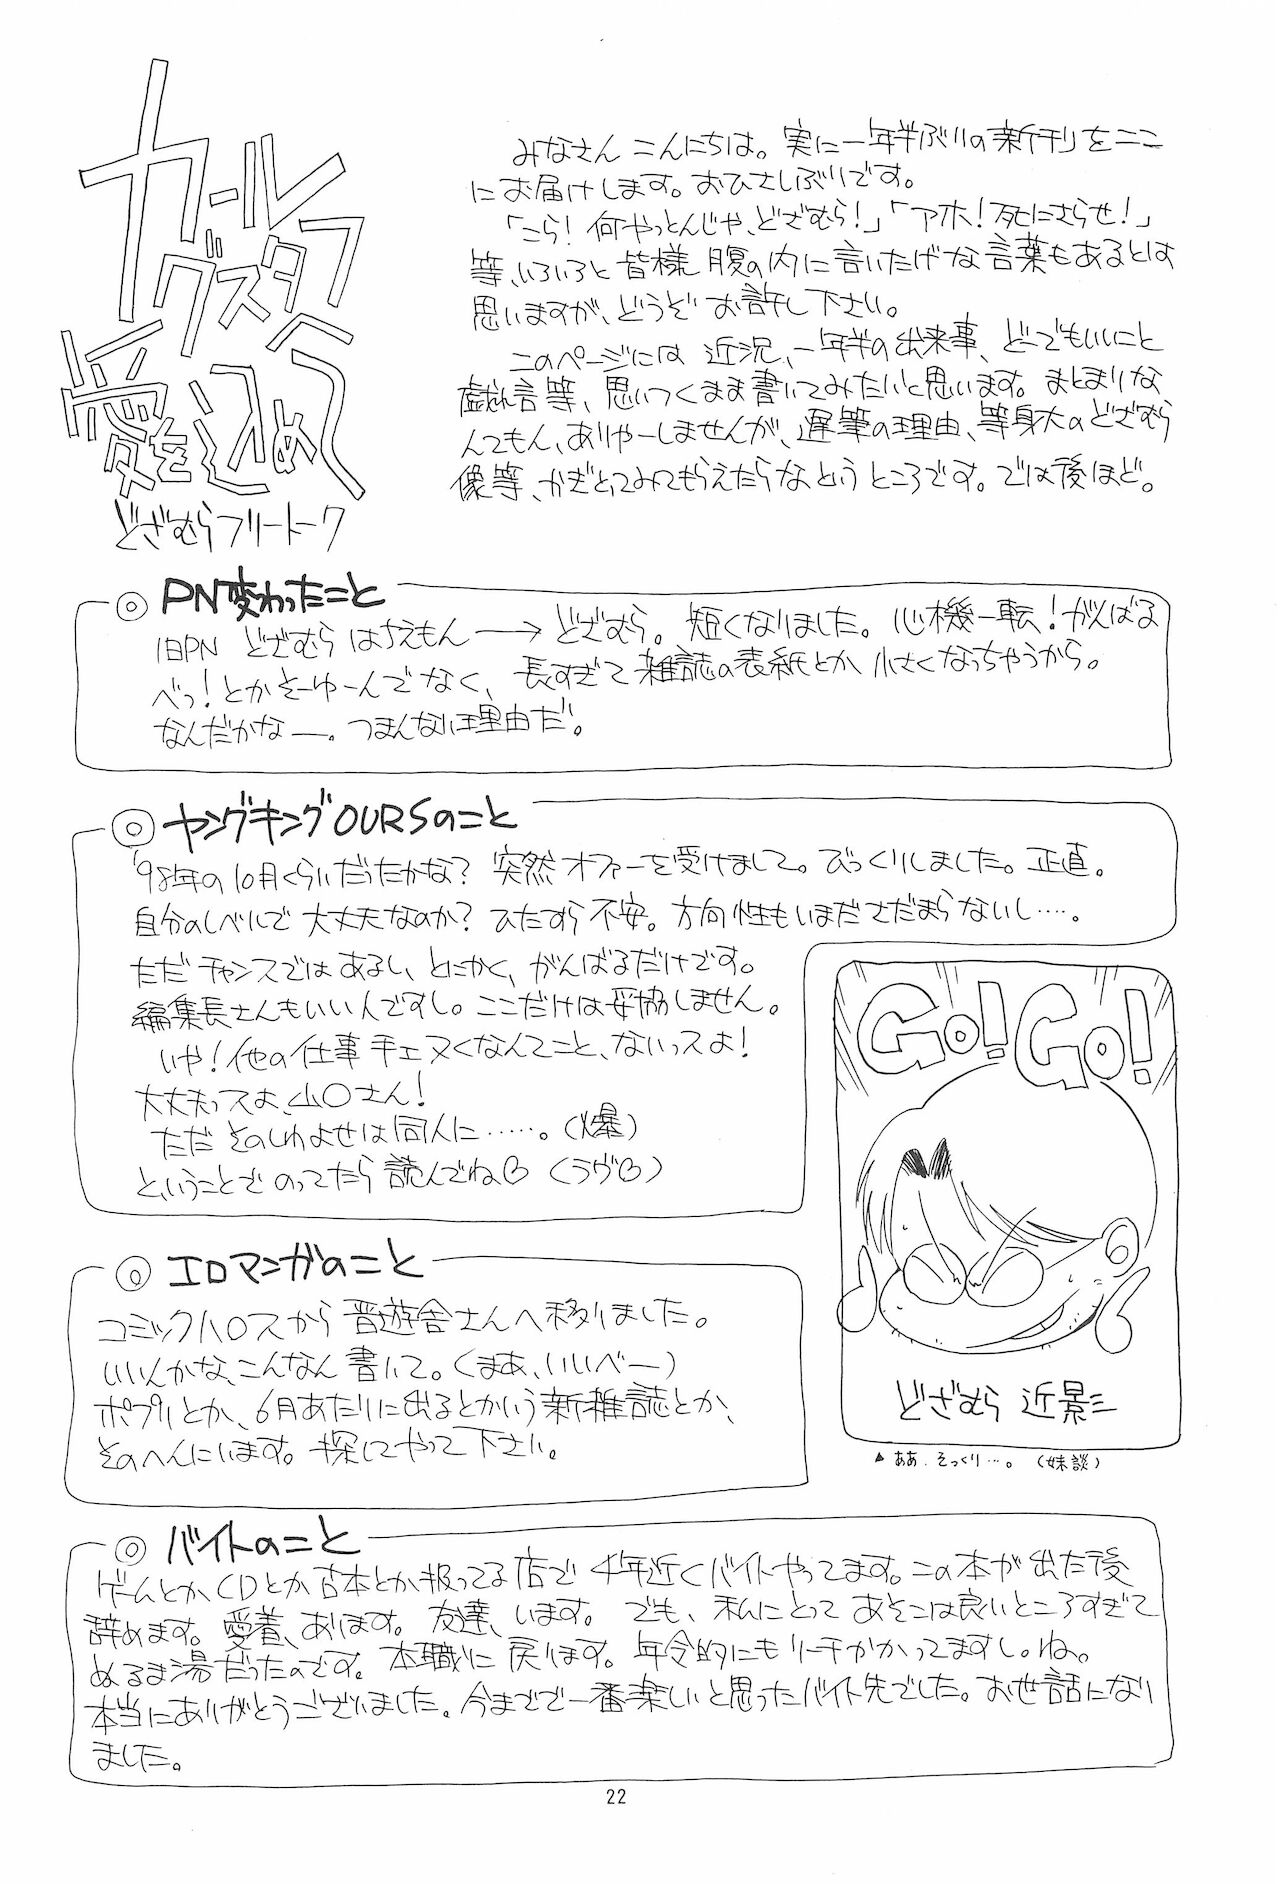 カール
グスタフへ
愛を込めて
どざむらフリートーク
みなさん こんにちは。実に一年半ぶりの新刊をここ
にお届けします。おひさしぶりです。
「こら!何やっとんじゃ、どざむら!」「アホ!死にさらせ!」
等、いろいろと皆様 腹の内に言いたげな言葉もあるとは
思いますが、どうぞお許し下さい。
このページには 近況、一年半の出来事、どーでもいいこと
戯れ言等、思いつくまま書いてみたいと思います。まとまりな
んてもん、ありゃーしませんが、遅筆の理由、等身大のどざむら
像等、かぎとってみてもらえたらなというところです。では後ほど。
◎ PN変わったこと
旧PN どざむら はちえもん → どざむら。短くなりました。心機一転!がんばる
べっ!とかそーゆーんでなく、長すぎて雑誌の表紙とか小さくなっちゃうから。
なんだかなー。つまんない理由だ。
◎ ヤングキングOURSのこと
'98年の10月くらいだったかな?突然オファーを受けまして。びっくりしました。正直。
自分のレベルで大丈夫なのか?ひたすら不安。方向性もいまださだまらないし….。
ただチャンスではあるし、とにかく、がんばるだけです。
編集長さんもいい人ですし。ここだけは妥協しません。
いや!他の仕事 手ェヌくなんてこと、ないっスよ!
大丈夫っスよ、山〇さん!
ただ そのしわよせは同人に……。(爆)
ということで のってたら読んでね♡ (ラヴ♡)
GO! GO!
どざむら 近影
▲ああ、そっくり…。(妹談)
◎ エロマンガのこと
コミックハ〇スから晋遊舎さんへ移りました。
いいんかな、こんなん書いて。(まあ、いいべー)
ポプリとか、6月あたりに出るとかいう新雑誌とか、
そのへんにいます。探してやって下さい。
◎ バイトのこと
ゲームとかCDとか古本とか扱ってる店で4年近くバイトやってます。この本が出た後
辞めます。愛着、あります。友達、います。でも、私にとってあそこは良いところすぎて
ぬるま湯だったのです。本職に戻ります。年令的にもリーチかかってますし。ね。
本当にありがとうございました。今までで一番楽しいと思ったバイト先でした。お世話になり
ました。
22